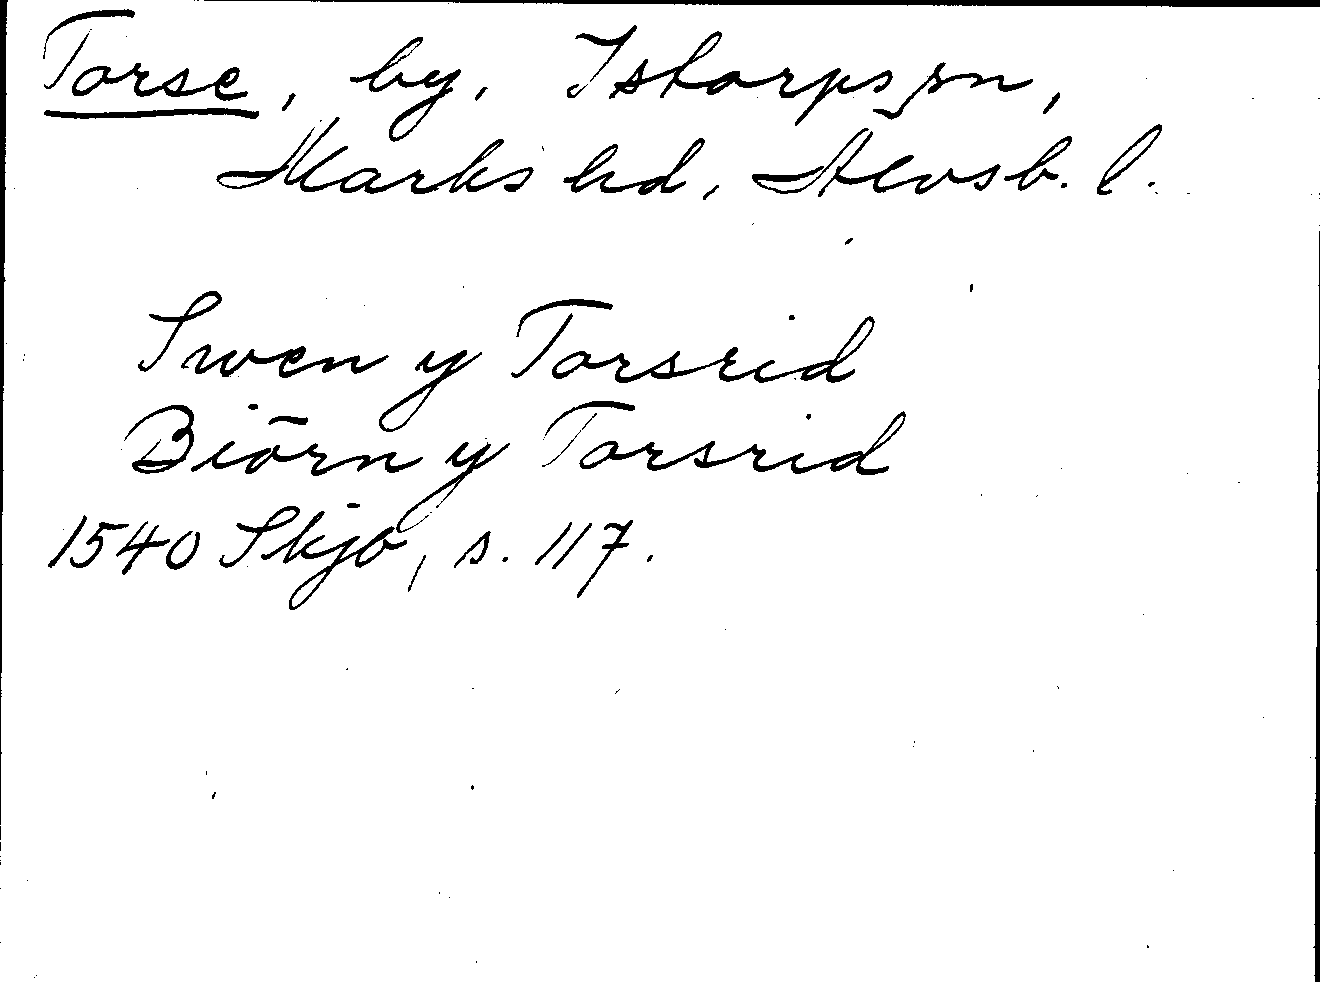 Torse, by, Istorps sn,
Marks hd, Älvsb. l.
Swen y Torsrid
Biörn y Torsrid
1540 Skjb, s. 117.